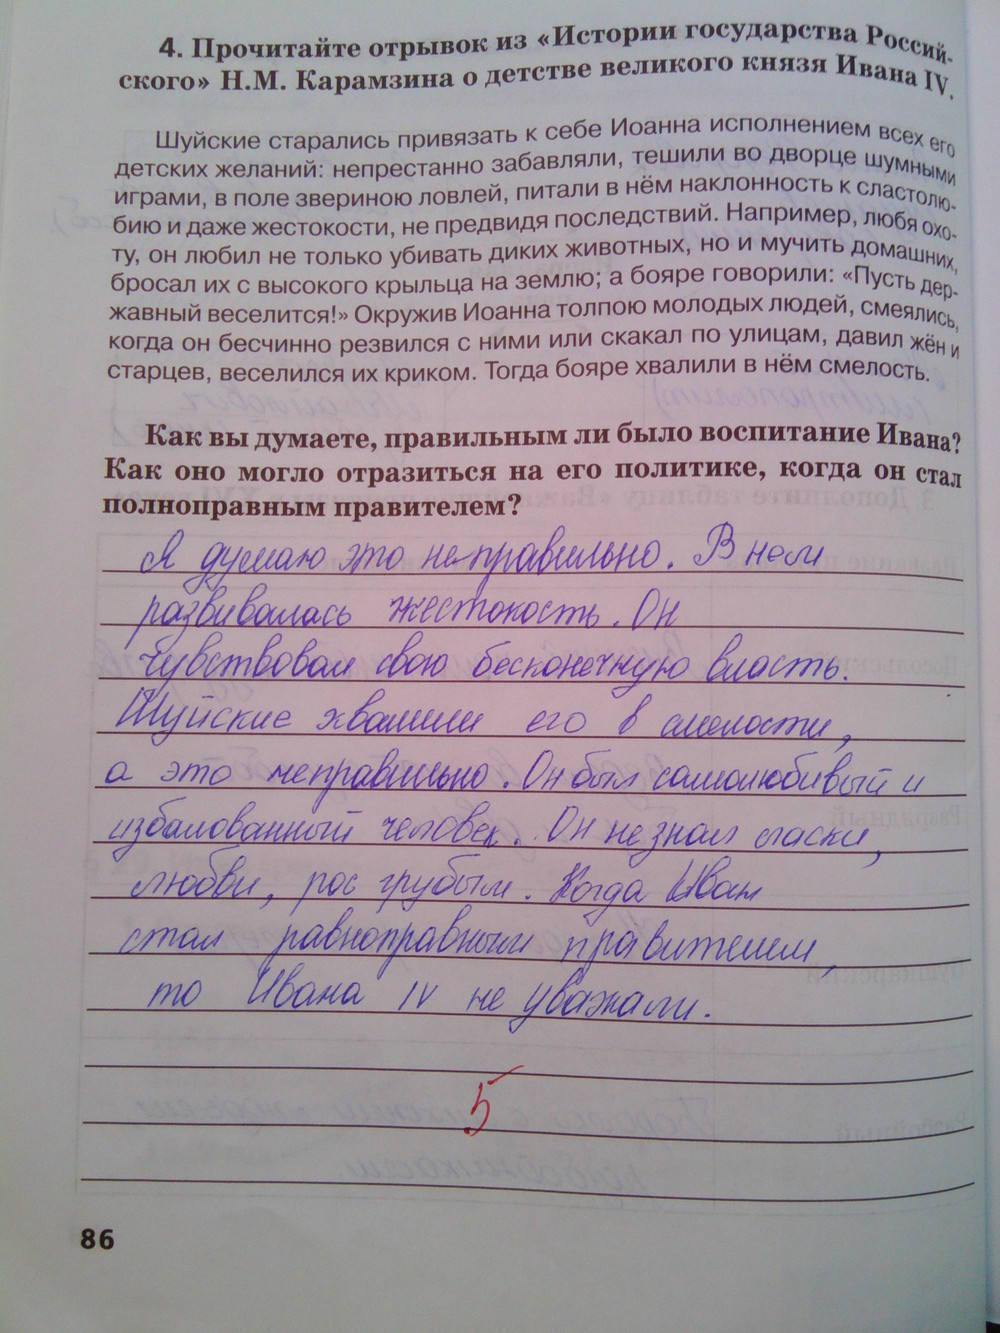 4. Прочитайте отрывок из «Истории государства Россий-
ского» Н.М. Карамзина о детстве великого князя Ивана IV.
Шуйские старались привязать к себе Иоанна исполнением всех его
детских желаний: непрестанно забавляли, тешили во дворце шумными
играми, в поле звериною ловлей, питали в нём наклонность к сластолю-
бию и даже жестокости, не предвидя последствий. Например, любя охо-
ту, он любил не только убивать диких животных, но и мучить домашних,
бросал их с высокого крыльца на землю; а бояре говорили: «Пусть дер-
жавный веселится!» Окружив Иоанна толпою молодых людей, смеялись,
когда он бесчинно резвился с ними или скакал по улицам, давил жён и
старцев, веселился их криком. Тогда бояре хвалили в нём смелость.
Как вы думаете, правильным ли было воспитание Ивана?
Как оно могло отразиться на его политике, когда он стал
полноправным правителем?
Я думаю это не правильно. В нем
развивалась жестокость. Он
чувствовал свою бесконечную власть.
Шуйские хвалили его в смелости,
а это неправильно. Он был самолюбивый и
избалованный человек. Он не знал ласки,
любви, рос грубым. Когда Иван
стал равноправным правителем,
то Ивана IV не уважали.
5
86